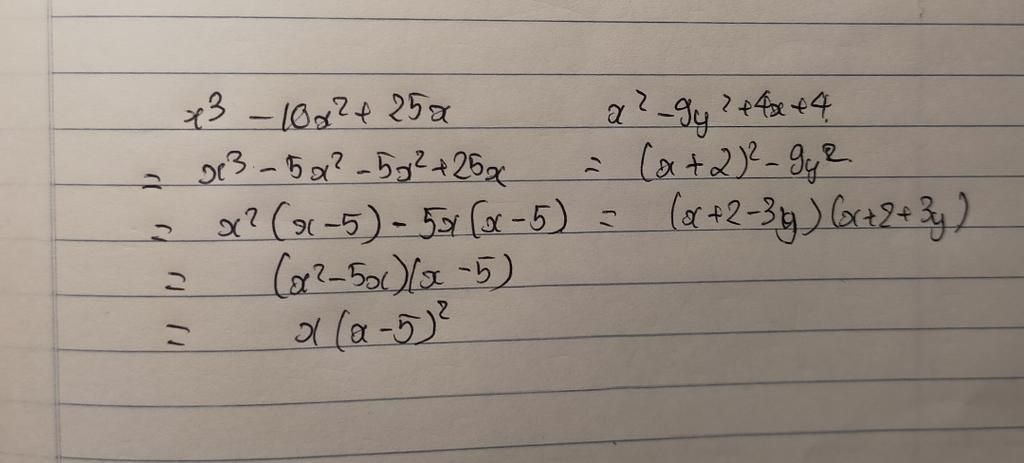 x³ - 10x² + 25x
= x³ - 5x² - 5x² + 25x
= x²(x-5) - 5x(x-5)
= (x²-5x)(x-5)
= x(x-5)²
x² - 9y² + 4x + 4
= (x+2)² - 9y²
= (x+2-3y)(x+2+3y)